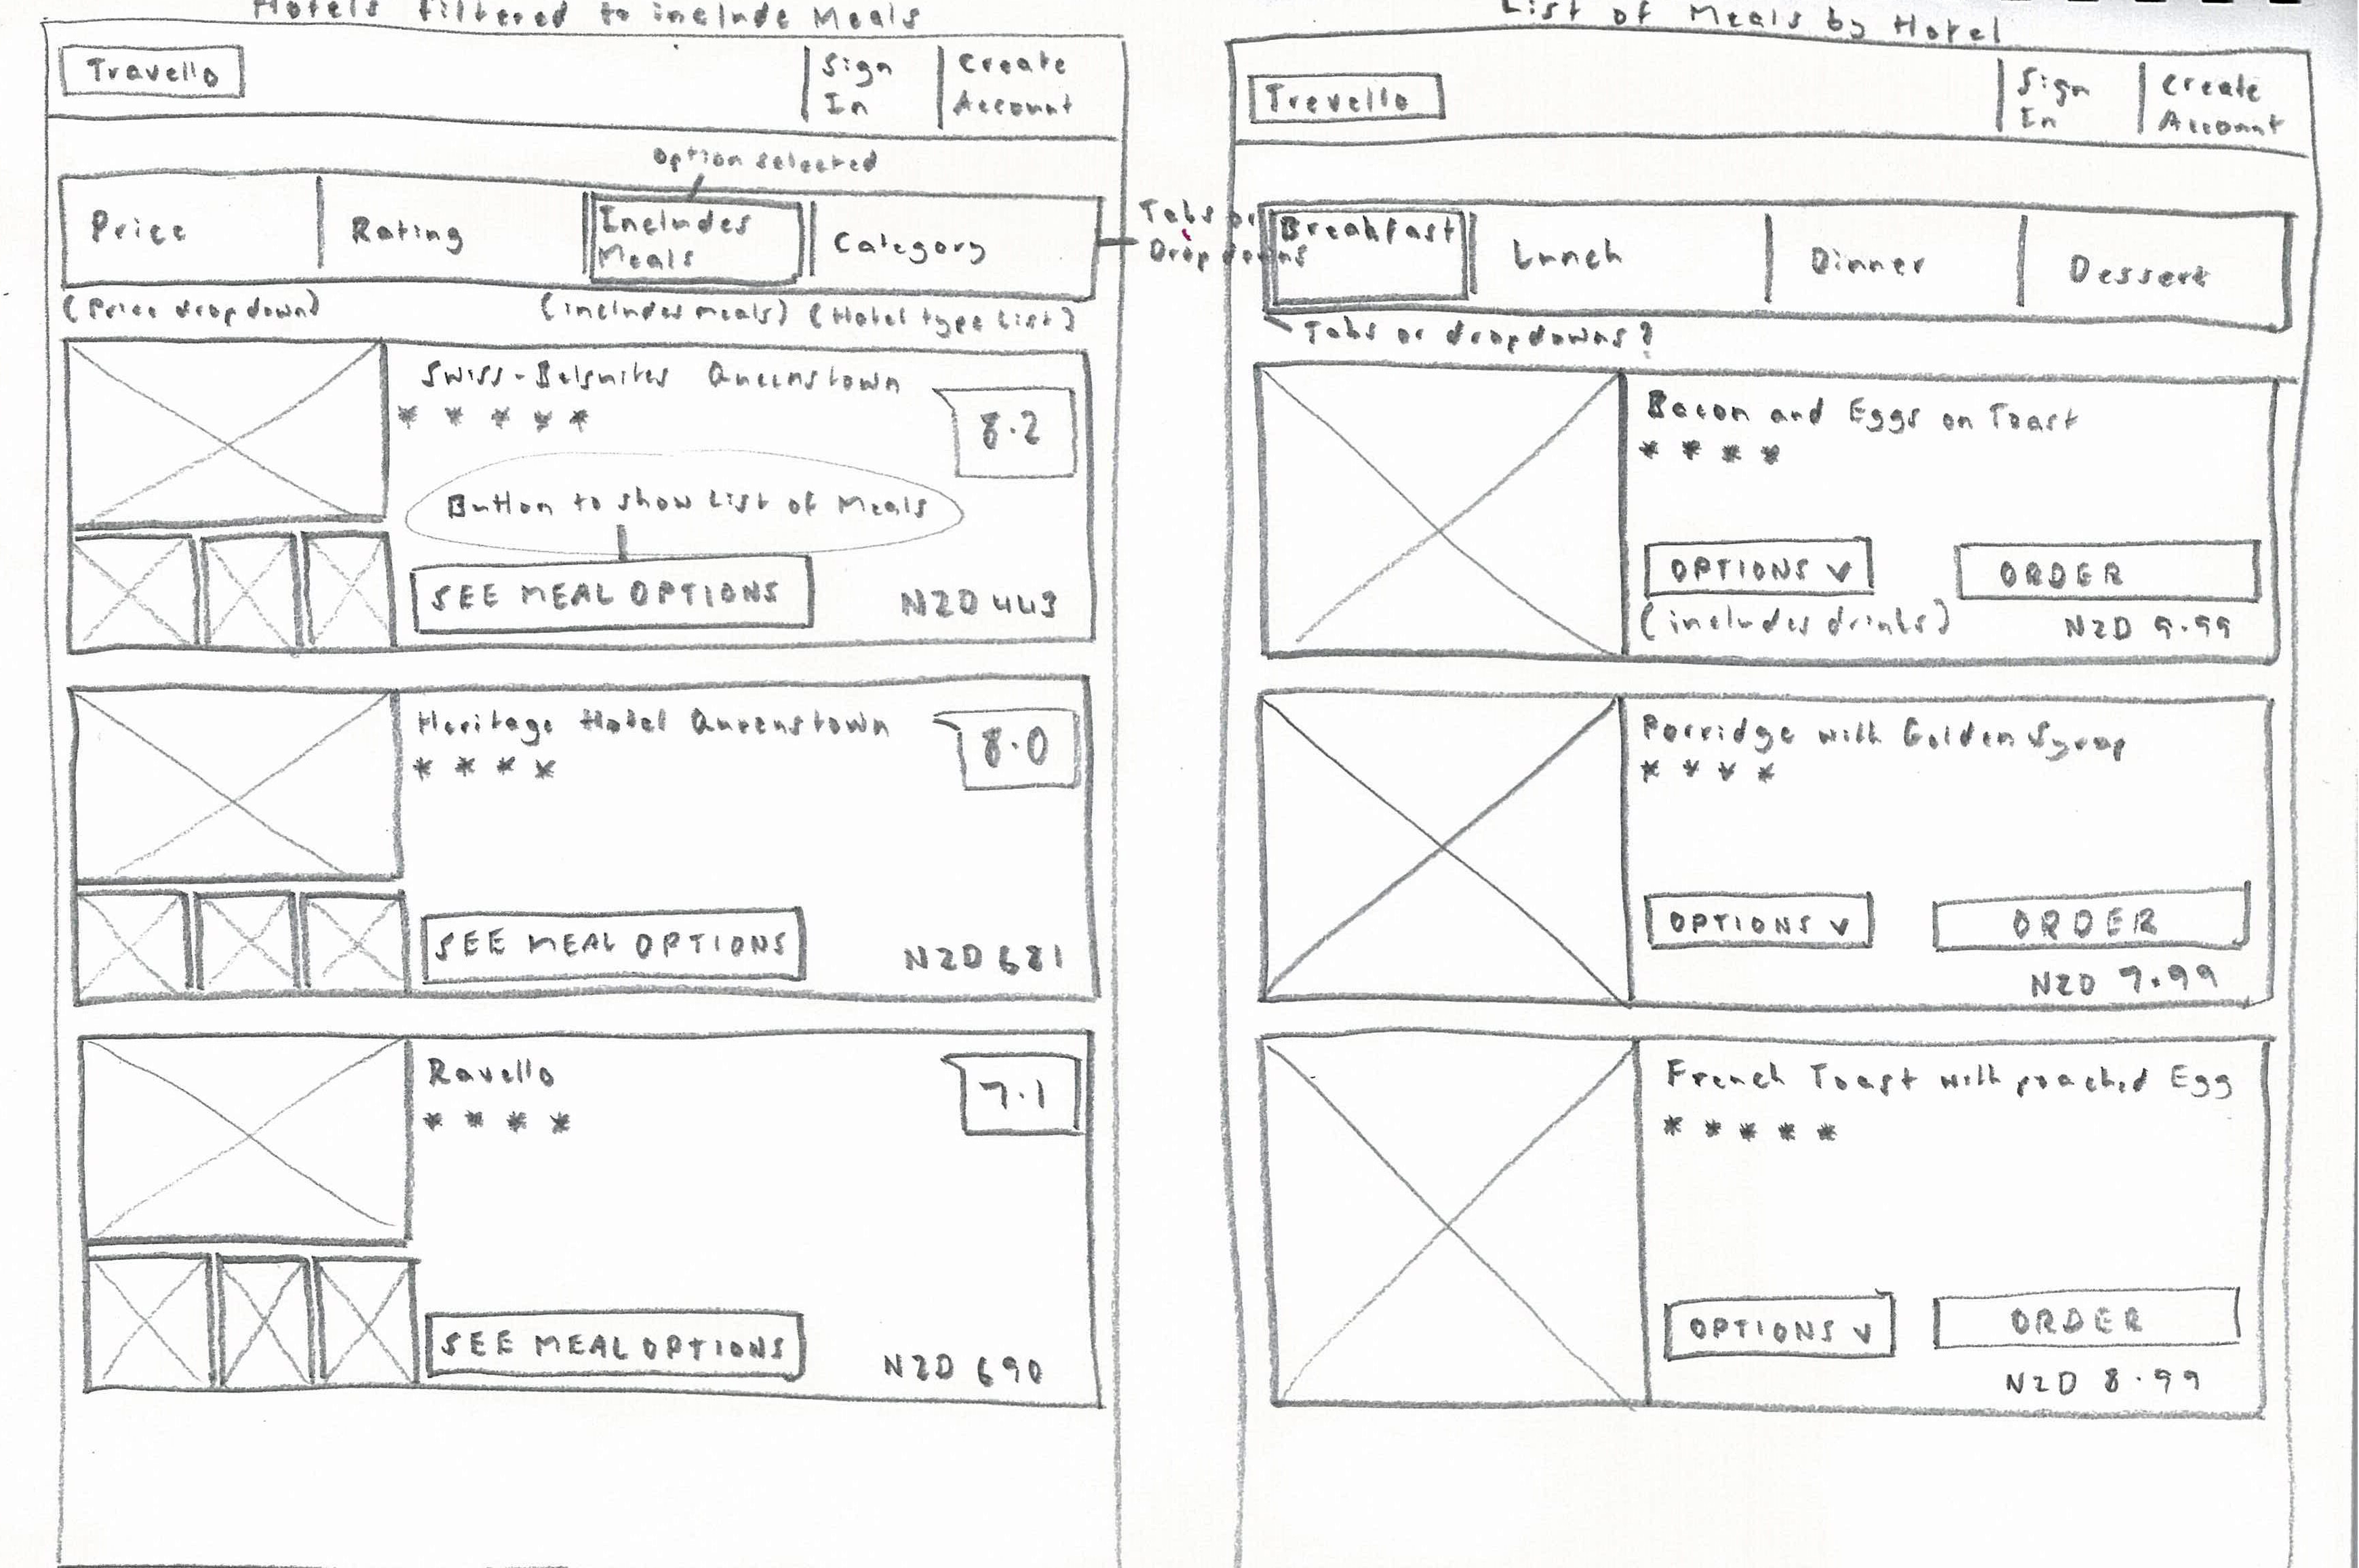 Hotels filtered to include Meals
Travello
Sign In
Create Account
option selected
Price
Rating
Includes Meals
Category
Tabs or Dropdowns
(Price dropdown)
(includes meals)
(Hotel type List)
Swiss-Belsuites Queenstown
* * * * *
8.2
Button to show List of Meals
SEE MEAL OPTIONS
NZD 443
Heritage Hotel Queenstown
* * * *
8.0
SEE MEAL OPTIONS
NZD 681
Ravello
* * * *
7.1
SEE MEAL OPTIONS
NZD 690
List of Meals by Hotel
Trevello
Sign In
Create Account
Breakfast
Lunch
Dinner
Dessert
Tabs or dropdowns?
Bacon and Eggs on Toast
* * * *
OPTIONS v
ORDER
(includes drinks)
NZD 9.99
Porridge with Golden Syrop
* * * *
OPTIONS v
ORDER
NZD 7.99
French Toast with poached Egg
* * * * *
OPTIONS v
ORDER
NZD 8.99